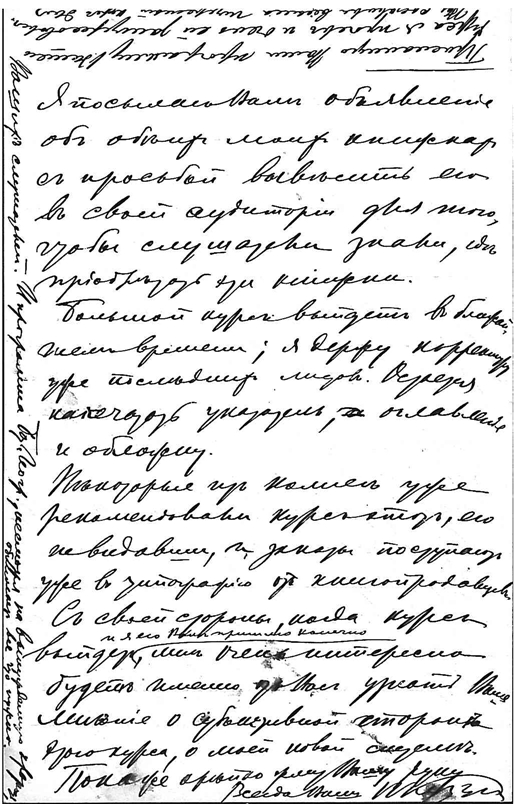 Я посылаю Вам объявление
объ обѣихъ моихъ книжкахъ
съ просьбой вывѣсить его
въ своей аудиторіи для того,
чтобы слушатели знали, гдѣ
пріобрѣтать эти книжки.
Большой курсъ выйдетъ въ ближай
шемъ времени; я держу корректуру
уже послѣднихъ листовъ. Остается
напечатать указатель, оглавленіе
и обложку.
Нѣкоторые изъ коллегъ уже
рекомендовали курсъ этотъ, его
не видавши, и заказы поступаютъ
уже въ типографію отъ книгопродавцевъ
Съ своей стороны, когда курсъ
и я его Вамъ пришлю конечно
выйдетъ, мнѣ очень интересно
будетъ именно отъ Васъ узнать Ваше
мнѣніе о субъективной сторонѣ
этого курса, о моей новой системѣ.
Пока же крѣпко жму Вашу руку
Всегда Вашъ
Вашихъ слушателей. И программа несмотря на
Присланную Вами программу